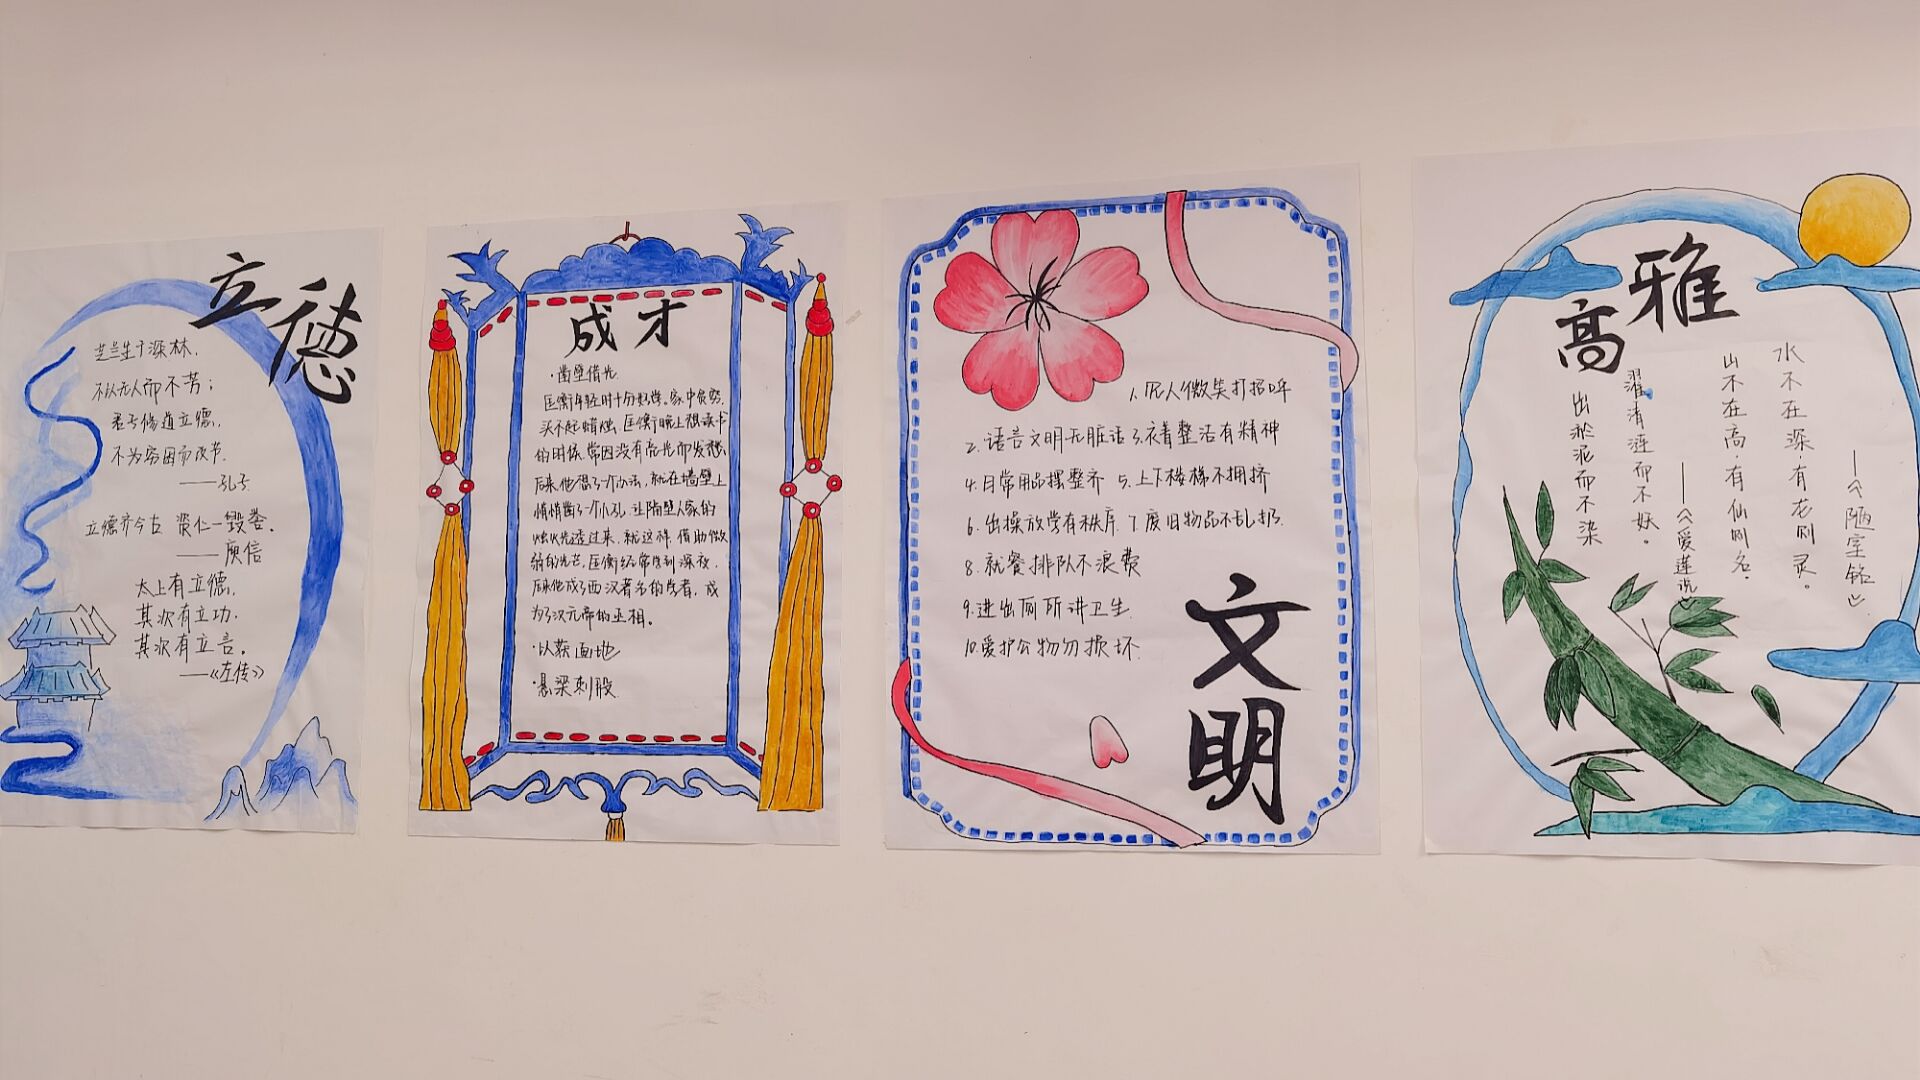 立德
芝兰生于深林,
不以无人而不芳;
君子修道立德,
不为穷困而改节.
——孔子
立德齐今古 资仁一毁誉。
——庾信
太上有立德,
其次有立功,
其次有立言。
——《左传》
成才
·凿壁借光
匡衡年轻时十分好学。家中贫穷,
买不起蜡烛,匡衡晚上想读书
的时候,常因没有亮光而发愁,
后来,他想了一个办法,就在墙壁上
悄悄凿了一个小孔,让隔壁人家的
烛火光透过来,就这样,借助微
弱的光芒,匡衡经常学到深夜,
后来他成了西汉著名的学者,成
为了汉元帝的丞相。
·以荻画地
·悬梁刺股
1.见人微笑打招呼
2.语言文明无脏话 3.衣着整洁有精神
4.日常用品摆整齐 5.上下楼梯不拥挤
6.出操放学有秩序 7.废旧物品不乱扔.
8.就餐排队不浪费
9.进出厕所讲卫生
10.爱护公物勿损坏.
文明
高雅
水不在深,有龙则灵。
——《陋室铭》
山不在高,有仙则名.
濯清涟而不妖。
——《爱莲说》
出淤泥而不染